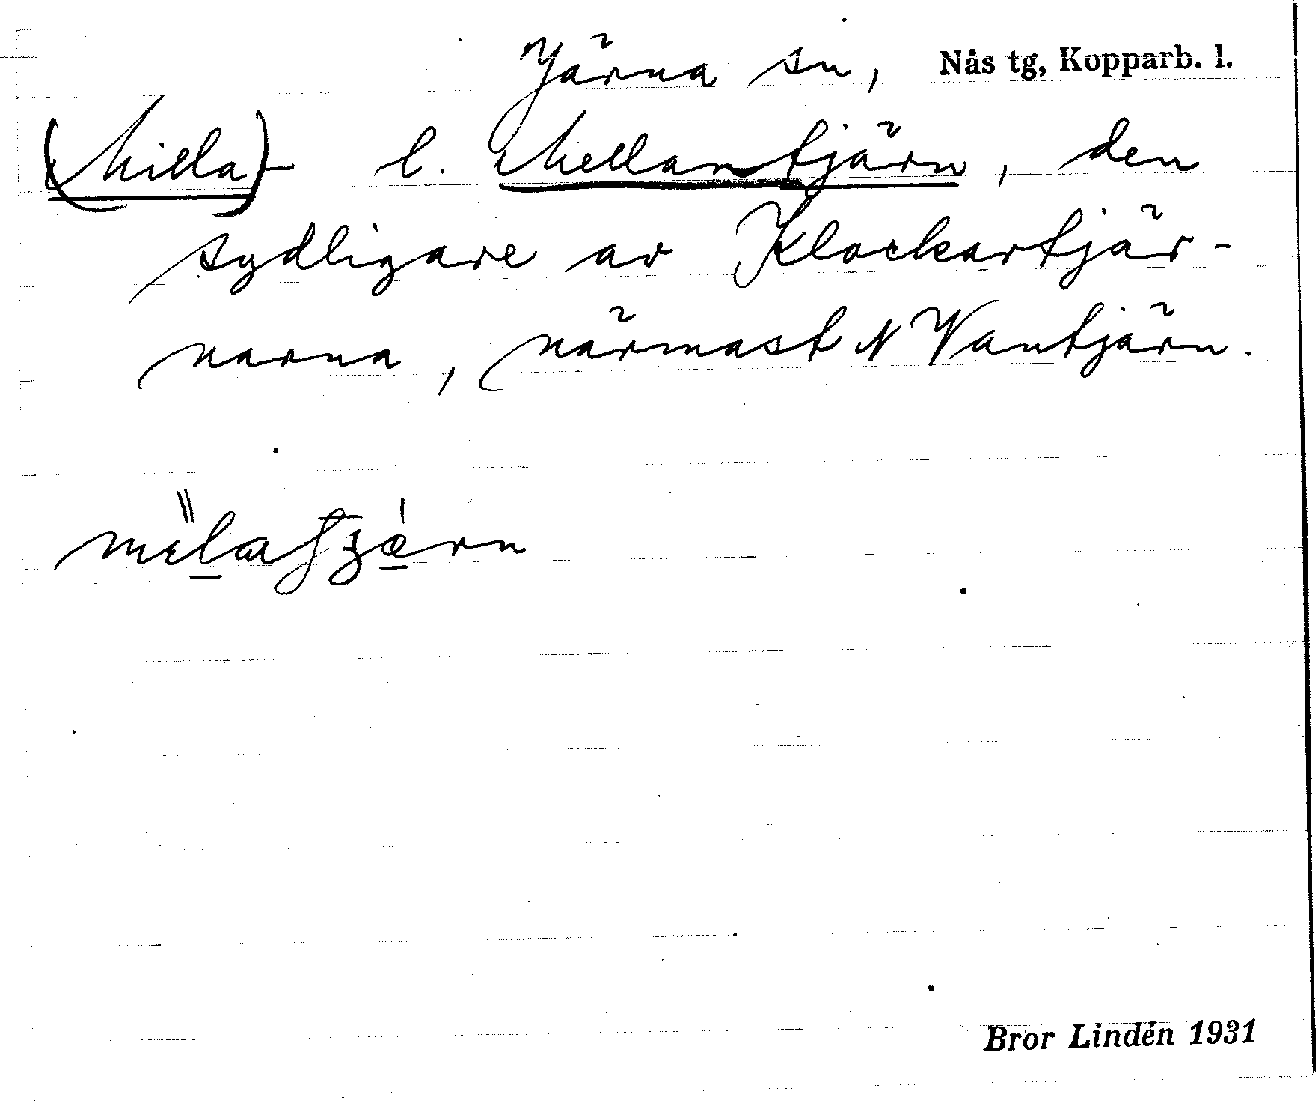 Järna sn, Nås tg, Kopparb. l.
(Milla)- l. Mellantjärn, den
sydligare av Klockartjär-
narna, närmast N Vantjärn.
Bror Lindén 1931